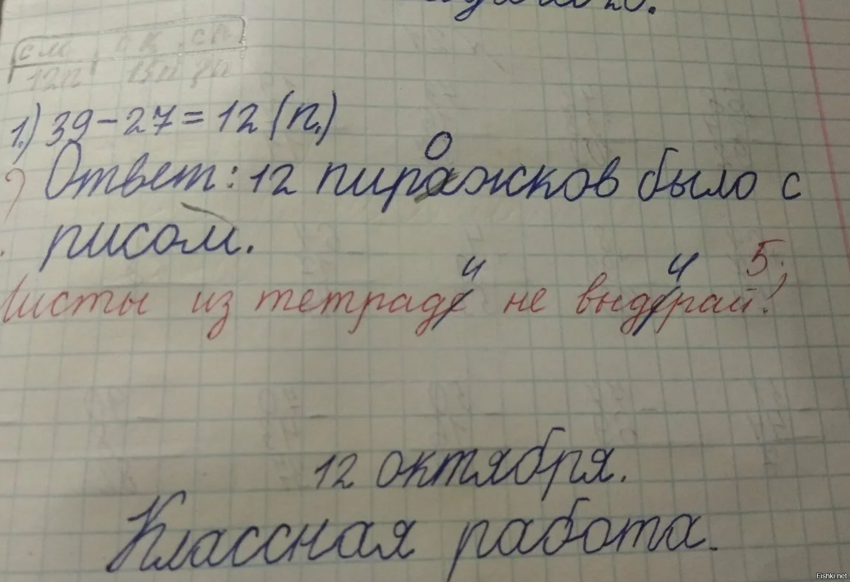 1.) 39-27=12 (п.)
Ответ: 12 пирожков было с
рисом.
Листы из тетради не выдирай! 5.
12 октября.
Классная работа.
Fishki.net